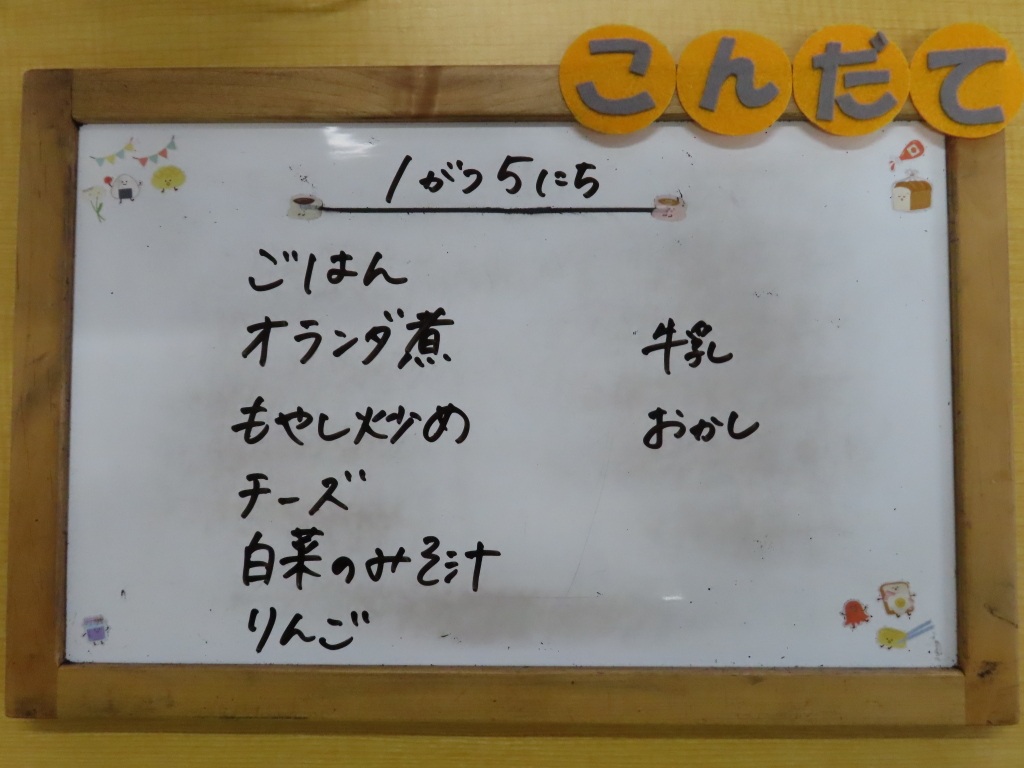 こんだて
1がつ5にち
ごはん
オランダ煮
もやし炒め
チーズ
白菜のみそ汁
りんご
牛乳
おかし